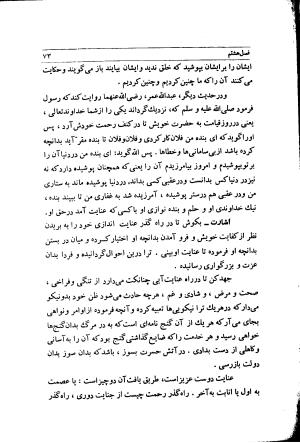 فصل هشتم ۷۳
ایشان را برایشان بپوشید که خلق ندید و ایشان بیایند باز می‌گویند و حکایت
می کنند آن را که ما چنین کردیم و چنین کردیم.
و در حدیث دیگر، عبدالله عمر، رضی‌الله عنهما روایت کند که رسول
فرمود صلی‌الله علیه و سلم که، نزدیک گرداند یکی را از شما خداوند تعالی،
یعنی در روز قیامت به حضرت خویش تا در کنف رحمت خویش آرد، پس
او را گوید که ای بنده من فلان کار کردی و فلان و فلان تا مقر آید بدانچه
کرده باشد از بی‌سامانی‌ها و خطاها. پس الله گوید: ای بنده من در دنیا آن را
بر تو بپوشیدم و امروز بیامرزیدم آن را یعنی که همچنان پوشیده دارد که نه
نیز در دنیا کس بدانست و در عقبی کسی بداند. در دنیا پوشیده ماند به ستاری
من و در عقبی هم در ستر پوشیده، آمرزیده شد به غفاری من تا ببیند بنده،
نیک خداوندی او و حلم و بنده نوازی او با کسی که عنایت آمد در حق او.
اشارت – بکوش تا در راه گذر عنایت ازلی خود را به بریدن
نظر از کفایت خویش و فرو آمدن بدانچه او اختیار کرده و میان در بستن
بدانچه او فرموده تا عنایت او بینی. ترا در این احوال گردانیده و فردا بدان
عزت و بزرگواری رسانیده.
جهد کن تا در راه عنایت آیی چنانکت می‌دارد از تنگی و فراخی،
صحت و مرض، و شادی و غم، هر چه حادث می‌شود ظن خود بدو نیکو
می‌دار که در هر یک ترا نیکویی‌ها تعبیه کرده و آنچه فرمود از اوامر و نواهی
بجای می‌آر که هر یک از آن گنج نامه‌ای است که به در مرگ بدان گنج‌ها
خواهی رسید و هر خدمت را که ضایع گذاشتی گنج بود که آن را به آسانی
و کاهلی از دست بدادی. در آتش حسرت بسوز، باشد که بدان سوز بدان
دولت بازرسی.
عنایت دوست عزیز است، طریق یافت آن دو چیز است: یا عصمت
به اول یا انابت به آخر. راه گذر رحمت چیست از جنایت دوری، راه گذر